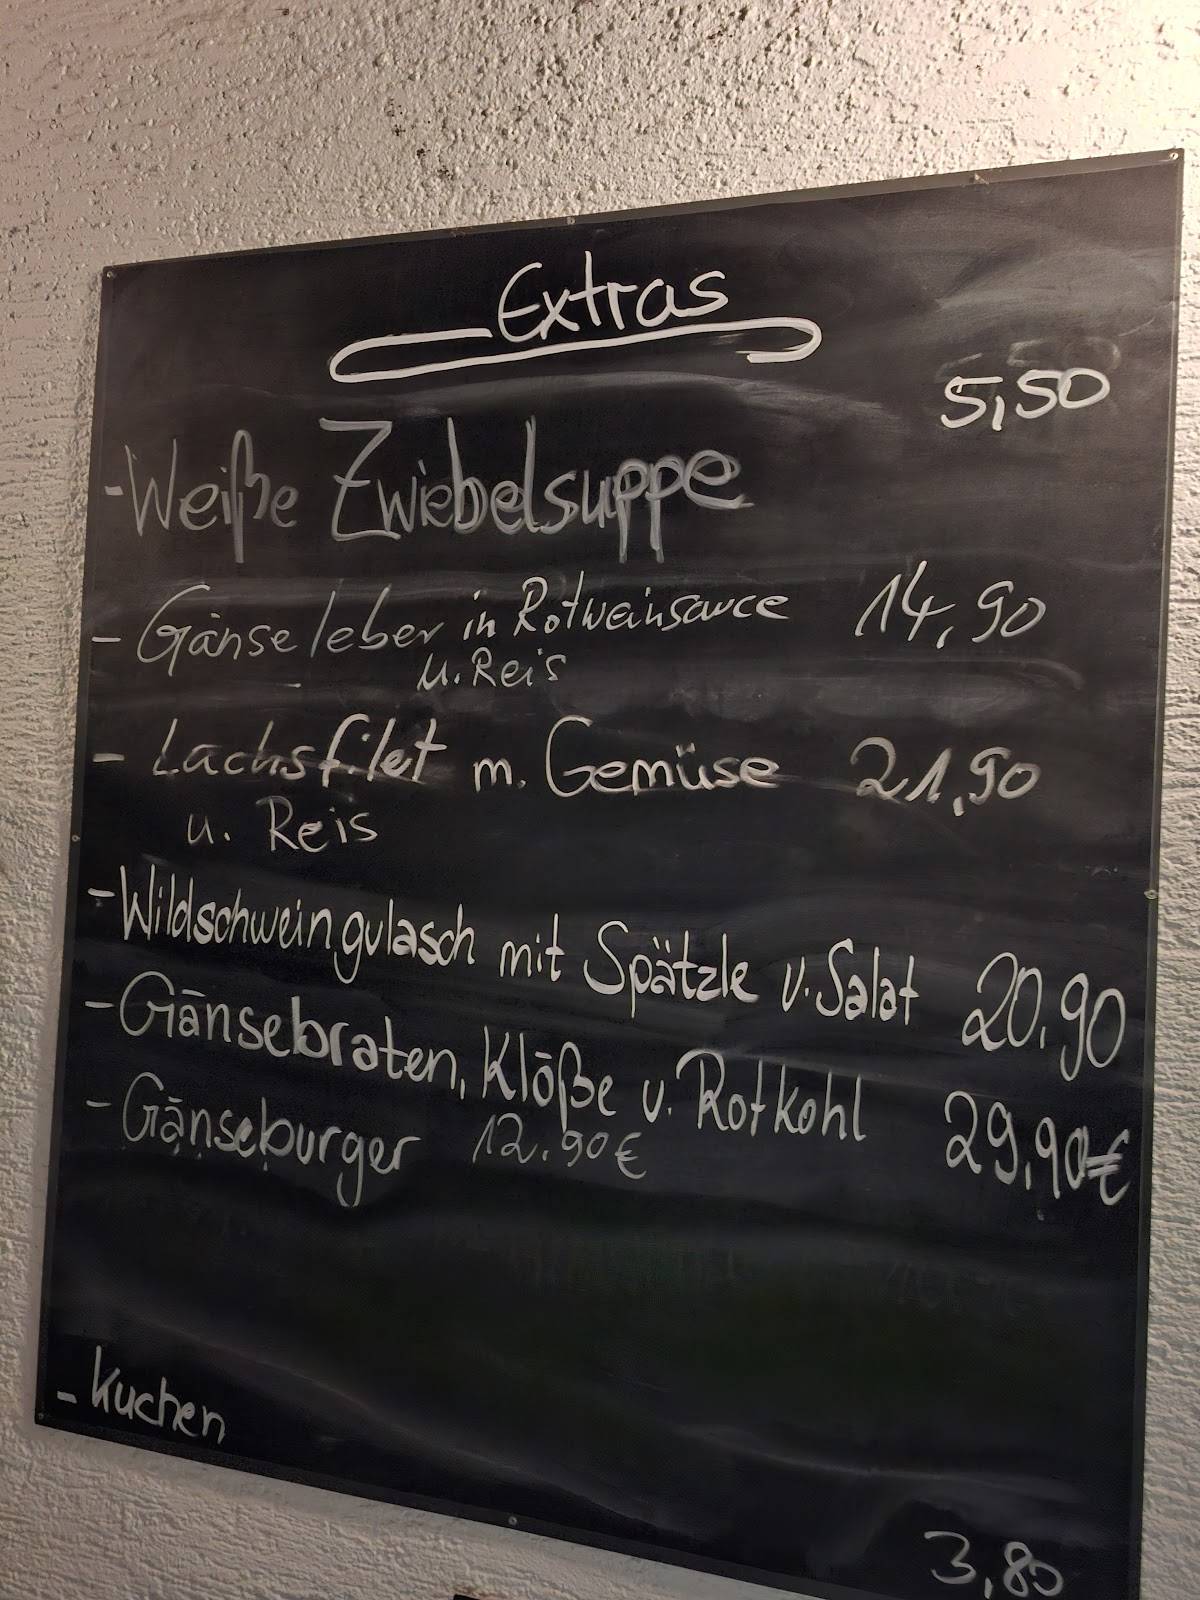 Extras
5,50
-Weiße Zwiebelsuppe
- Gänseleber in Rotweinsauce 14,90
u. Reis
- Lachsfilet m. Gemüse 21,90
u. Reis
-Wildschweingulasch mit Spätzle u. Salat 20,90
-Gänsebraten, Klöße u. Rotkohl 29,90€
- Gänseburger 12.90€
- Kuchen
3,80